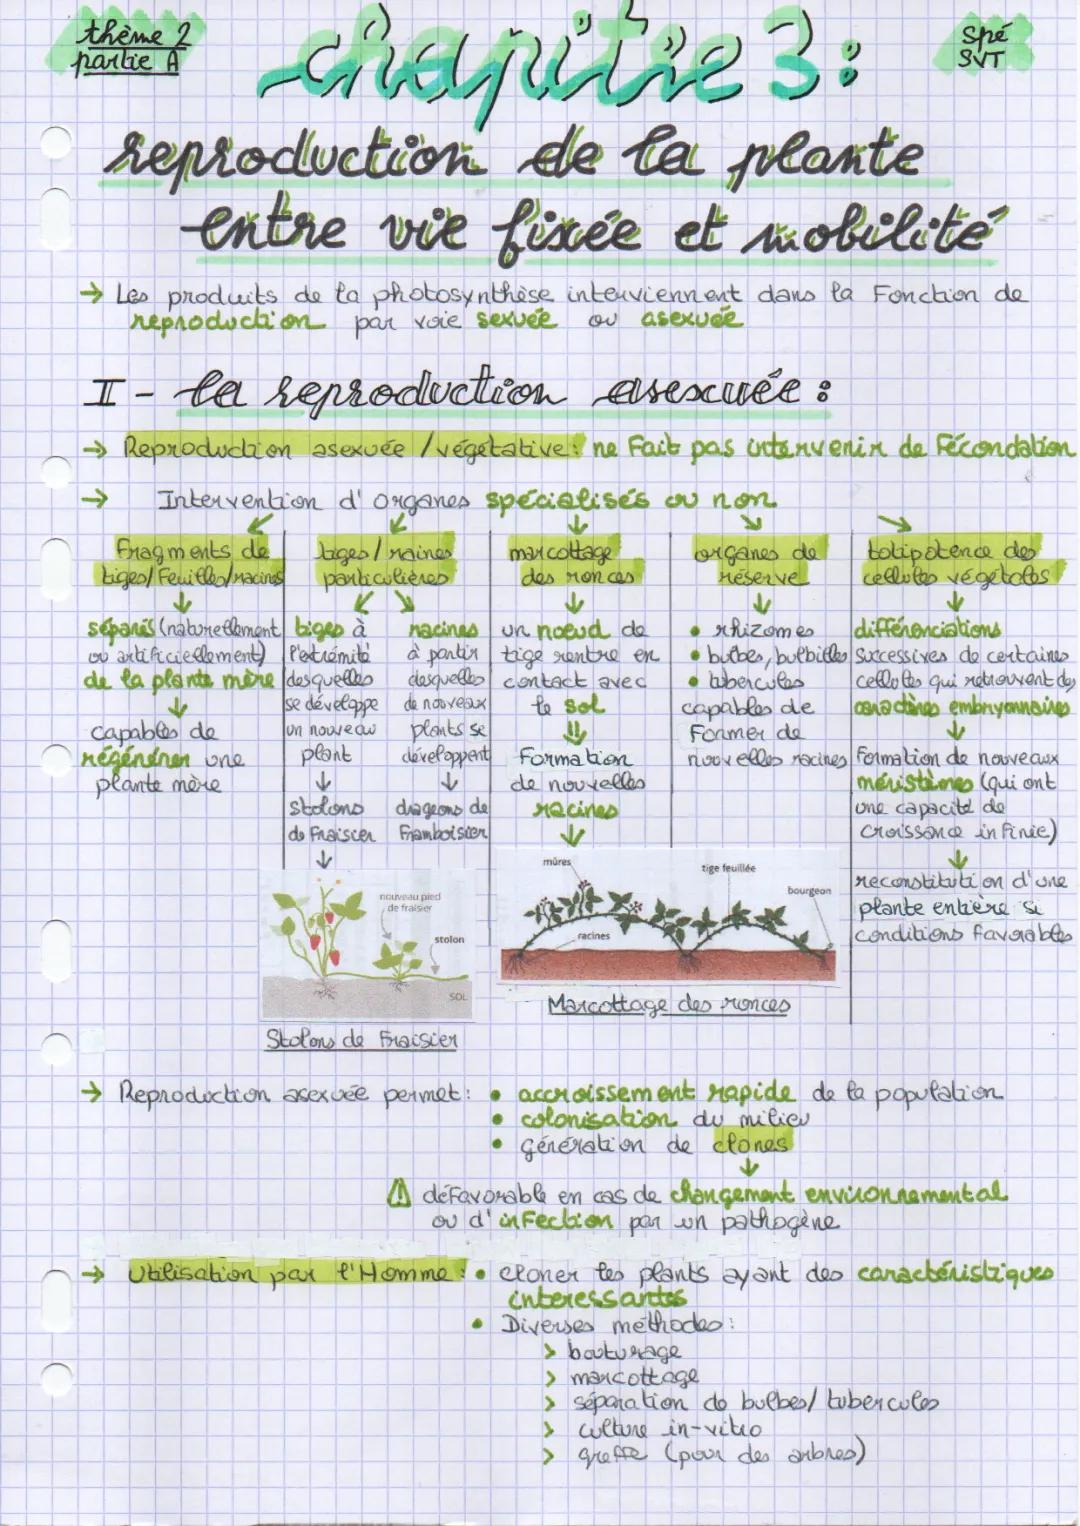 thème 2
partie A
Spé
SVT
chapitre 3 :
reproduction de la plante
entre vie fixée et mobilité
→ Les produits de la photosynthèse interviennent dans la Fonction de
reproduction par voie sexuée ou asexuée
I - la reproduction asexuée :
→ Reproduction asexuée / végétative : ne Fait pas intervenir de Fécondation
→ Intervention d'organes spécialisés ou non
Fragments de
tiges/Feuilles/racines
↓
séparés (naturellement
ou artificiellement)
de la plante mère
↓
capables de
régénérer une
plante mère
tiges / raines
particulières
tiges à
l'extrémité
desquelles
se développe
un nouveau
plant
↓
Stolons
de Fraisier
↓
racines
à partir
desquelles
de nouveaux
plants se
développent
↓
drageons de
Framboisier
marcottage
des ronces
↓
un noeud de
tige rentre en
contact avec
le sol
⇓
Formation
de nouvelles
racines
↓
organes de
réserve
↓
• rhizomes
• bulbes, bulbilles
• tubercules
capables de
Former de
nouvelles racines
totipotence des
cellules végétales
↓
différenciations
successives de certaines
cellules qui retrouvent des
caractères embryonnaires
↓
Formation de nouveaux
méristèmes (qui ont
une capacité de
croissance infinie)
↓
reconstitution d'une
plante entière si
conditions favorables
nouveau pied
de fraisier
stolon
SOL
Stolons de Fraisier
mûres
tige feuillée
bourgeon
racines
Marcottage des ronces
→ Reproduction asexuée permet : • accroissement rapide de la population
• colonisation du milieu
• génération de clones
↓
⚠ déFavorable en cas de changement environnemental
ou d'infection par un pathogène
→ Utilisation par l'Homme : • cloner les plants ayant des caractéristiques
interessantes
• Diverses méthodes :
> bouturage
> marcottage
> séparation de bulbes/ tubercules
> culture in-vitro
> greffe (pour des arbres)